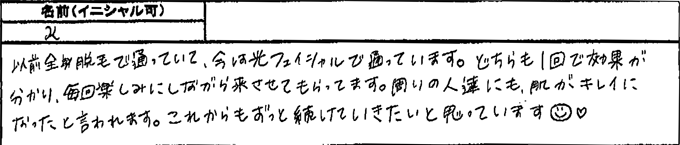 名前(イニシャル可)
K
以前全身脱毛で通っていて、今は光フェイシャルで通っています。どちらも1回で効果が
分かり、毎回楽しみにしながら来させてもらってます。周りの人達にも、肌がキレイに
なったと言われます。これからもずっと続けていきたいと思っています☺♡